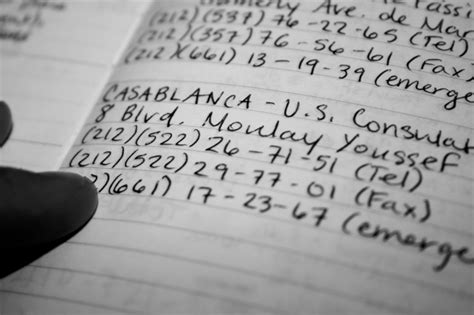 Ave. de Mar
(212)(537) 76-22-65 (Tel)
(212)(357) 76-56-61 (Fax)
(212)(661) 13-19-39 (emerge
CASABLANCA - U.S. Consulat
8 Blvd. Moulay Youssef
(212)(522) 26-71-51 (Tel)
(212)(522) 29-77-01 (Fax)
2)(661) 17-23-67 (emerge